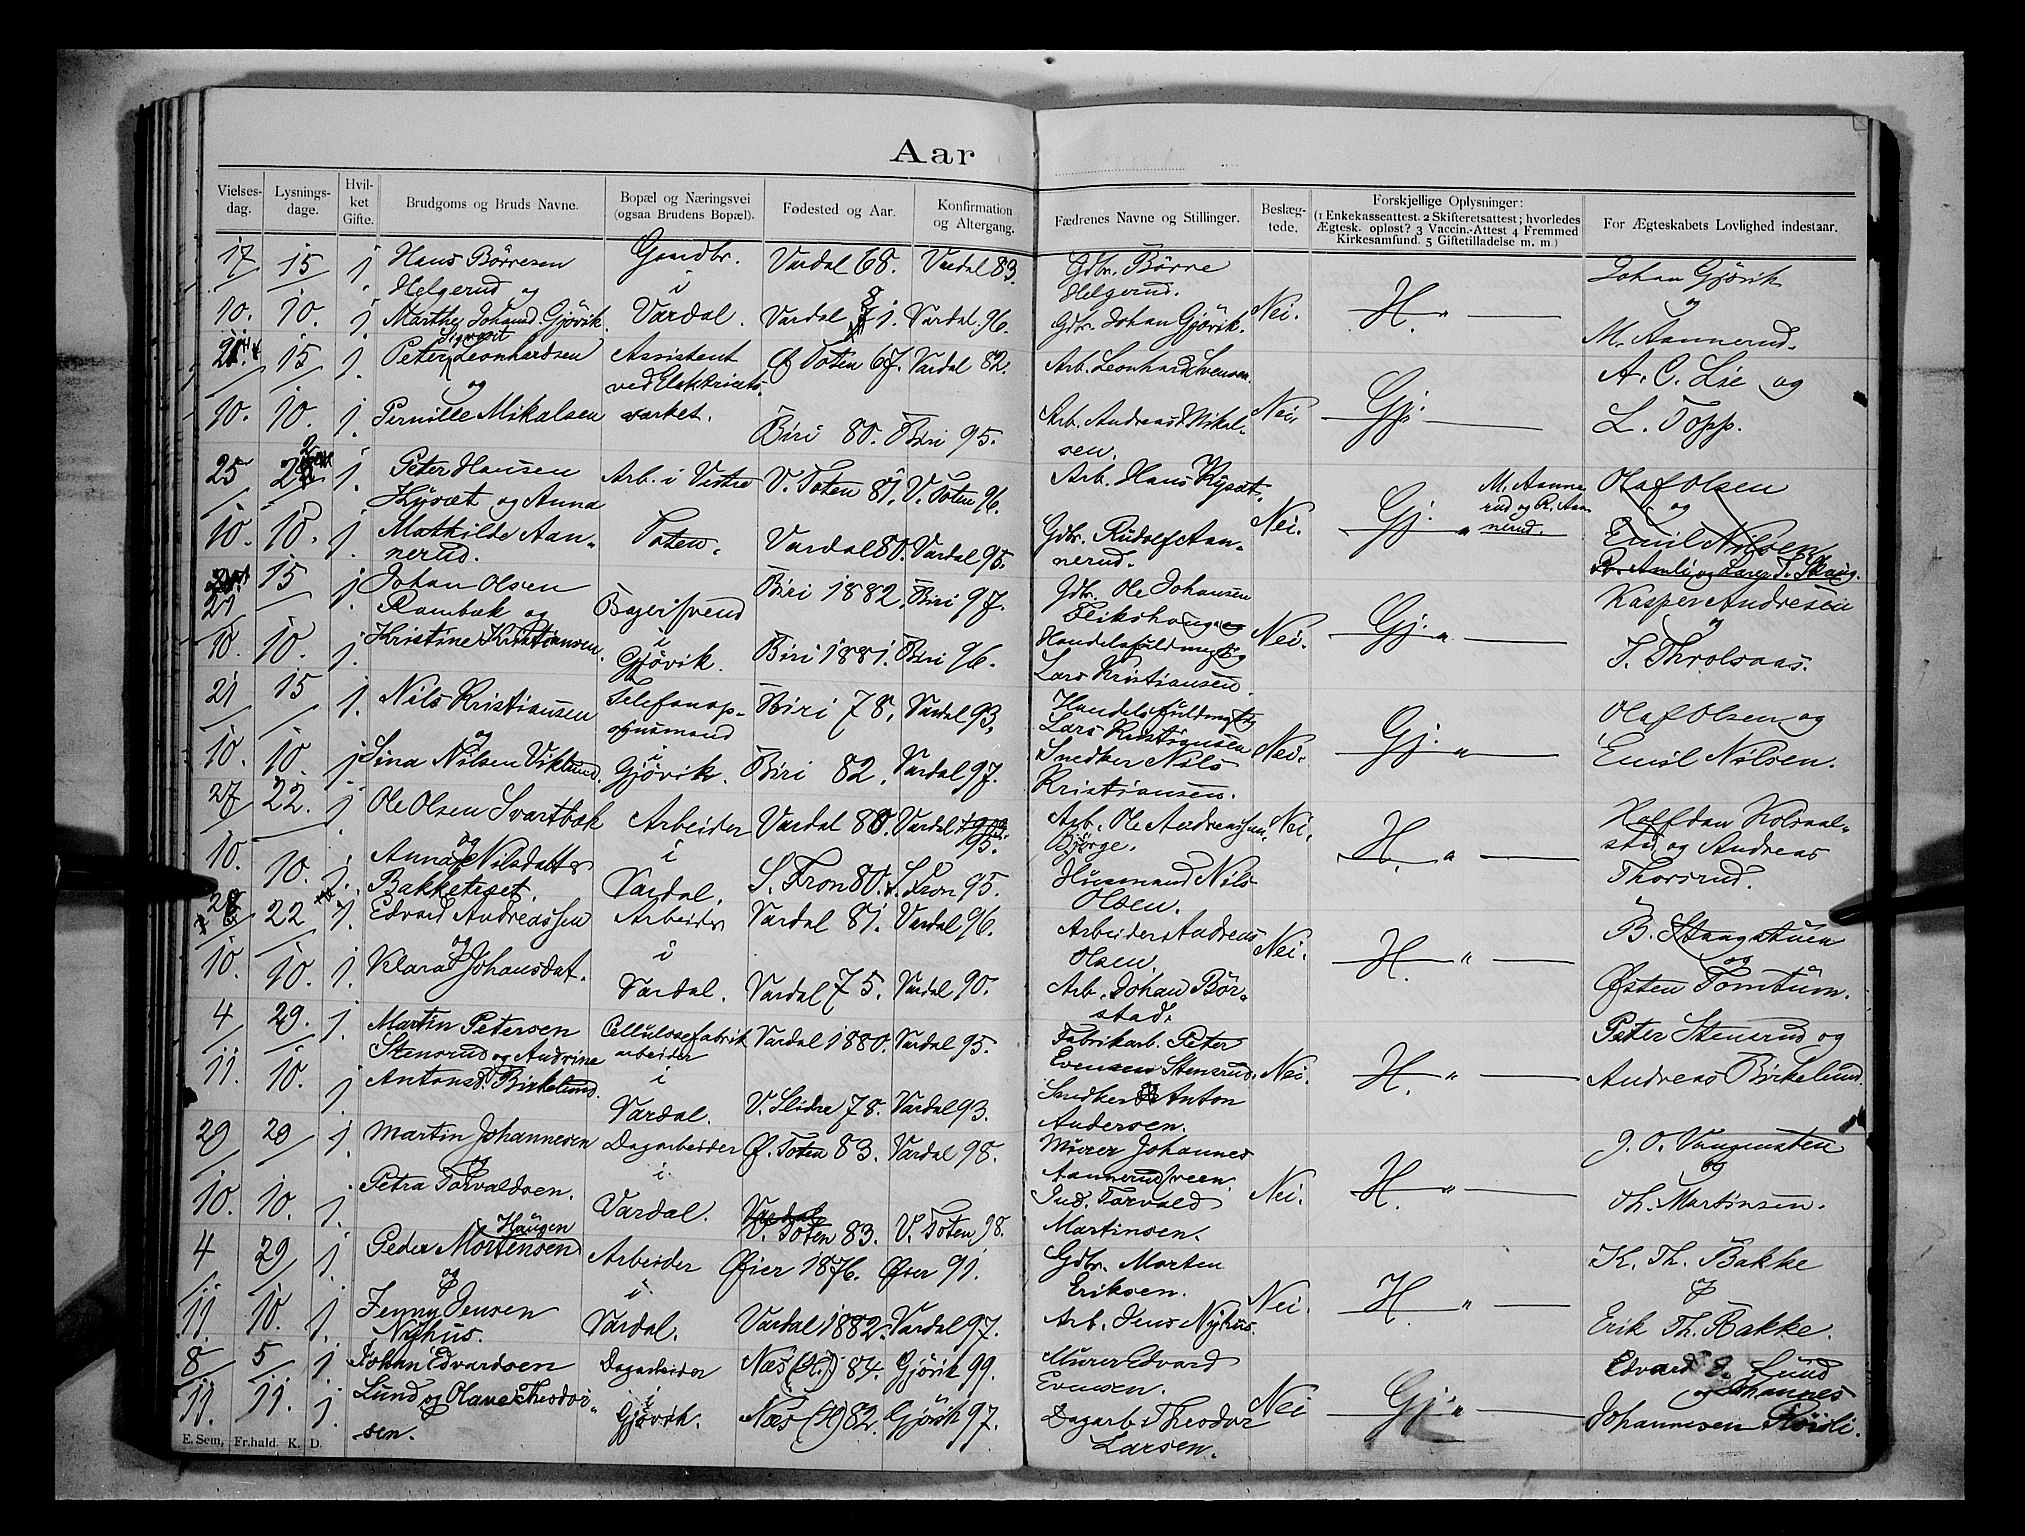 Aar
Vielses-
dag.
Lysnings-
dage.
Hvil-
ket
Gifte.
Brudgoms og Bruds Navne.
Bopæl og Næringsvei
(ogsaa Brudens Bopæl).
Fødested og Aar.
Konfirmation
og Altergang.
Fædrenes Navne og Stillinger.
Beslæg-
tede.
Forskjellige Oplysninger:
(1 Enkekasseattest. 2 Skifteretsattest; hvorledes
Ægtesk. opløst? 3 Vaccin.-Attest 4 Fremmed
Kirkesamfund. 5 Giftetilladelse m. m.)
For Ægteskabets Lovlighed indestaar.
17 15 j. Hans Börresen Gaardbr. Vardal 68. Vardal 83. Gdbr. Börre Johan Gjövik
Helgerud og i Helgerud. Nei. H. " og
10. 10. j. Marthe Johansd. Gjövik. Vardal. Vardal 81. Vardal 96. Gdbr. Johan Gjövik. M. Aannerud.
Sigvart
15 j. Peter Leonhardsen Assistent Ø Toten 67. Vardal 82. Arb. Leonhard Svensen. A. C. Lie og
og ved Elektricitets-
10. 10. j. Pernille Mikalsen værket. Biri 80. Biri 95. Arb. Andreas Mikal- Nei. Gj. L. Topp.
sen.
25 j. Peter Hansen Arb. i Vestre V. Toten 81. V. Toten 96. Arb. Hans Kysæt. M. Aanne- Olaf Olsen
Kysæt og Anna Nei. Gj. " rud og R. Aan- og
10. 10. j. Mathilde Aan- Toten. Vardal 80. Vardal 95. Gdbr. Rudolf Aan- nerud. Emil Nilsen
nerud. nerud.
21 15 j. Johan Olsen Biri 1882. Biri 97. Gdbr. Ole Johansen Kasper Andresen
Rambæk og Bagersvend og
10. 10. j. Kristine Kristiansen. i Biri 1881. Biri 96. Handelsfuldmægtig Nei. Gj. " T. Throlsaas.
Gjövik. Lars Kristiansen.
21 15 j. Nils Kristiansen Telefonop- Biri 78. Vardal 93. Handelsfuldmægtig Olaf Olsen og
og synsmand Lars Kristiansen
10. 10. j. Sina Nilsen Viklund. i Biri 82. Vardal 97. Snedker Nils Nei. Gj. " Emil Nilsen.
Gjövik. Kristiansen.
27 22. j. Ole Olsen Svartbæk Arbeider Vardal 80. Vardal 95. Arb. Ole Andreassen Nei. H. " Halfdan Kolvaal-
og i Björge. stad og Andreas
10. 10. j. Anna Nilsdatter Vardal. S. Fron 80. S. Fron 95. Husmand Nils Thorsrud.
Bakketeset. Olsen.
28 22 j. Edvard Andreassen Arbeider Vardal 81. Vardal 96. Arbeider Andreas Nei. H. " B. Skaugstuen
og i Olsen. og
10. 10. j. Klara Johansdat. Vardal. Vardal 75. Vardal 90. Arb. Johan Bör- Østen Tomtum.
stad.
4 29. j. Martin Petersen Cellulosefabrik Vardal 1880. Vardal 95. Fabrikarb. Peter Peter Stensrud og
Stensrud og Andrine arbeider Evensen Stensrud. Nei. H. "
11. 10. j. Antonsd. Birkelund. i V. Slidre 78. Vardal 93. Snedker Anton Andreas Birkelund.
Vardal. Andersen.
29 29 j. Martin Johannesen Dagarbeider Ø. Toten 83. Vardal 98. Murer Johannes J. O. Vangensten
og i Aannerudsveen. og
10. 10. j. Petra Torvaldsen. Vardal. V. Toten 83. V. Toten 98. Ind. Torvald Nei. H. " Th. Martinsen.
Martinsen.
Haugen
4 29 j. Peder Mortensen Arbeider Øier 1876. Øier 91. Gdbr. Morten K. Th. Bakke
og i Eriksen. Nei. H. " og
11. 10. j. Jenny Jensen Vardal. Vardal 1882. Vardal 97. Arb. Jens Nyhus. Erik Th. Bakke.
Nyhus.
8 5 j. Johan Edvardsen Dagarbeider Næs (H.) 84. Gjövik 99. Murer Edvard Edvard E. Lund
i Evensen. og Johannes
11. 11. j. Lund og Olave Theodor- Gjövik. Næs (H) 82. Gjövik 97. Dagarb. Theodor Nei Gj. " Johannesen
sen. Larsen.
E. Sem, Fr.hald. K. D.